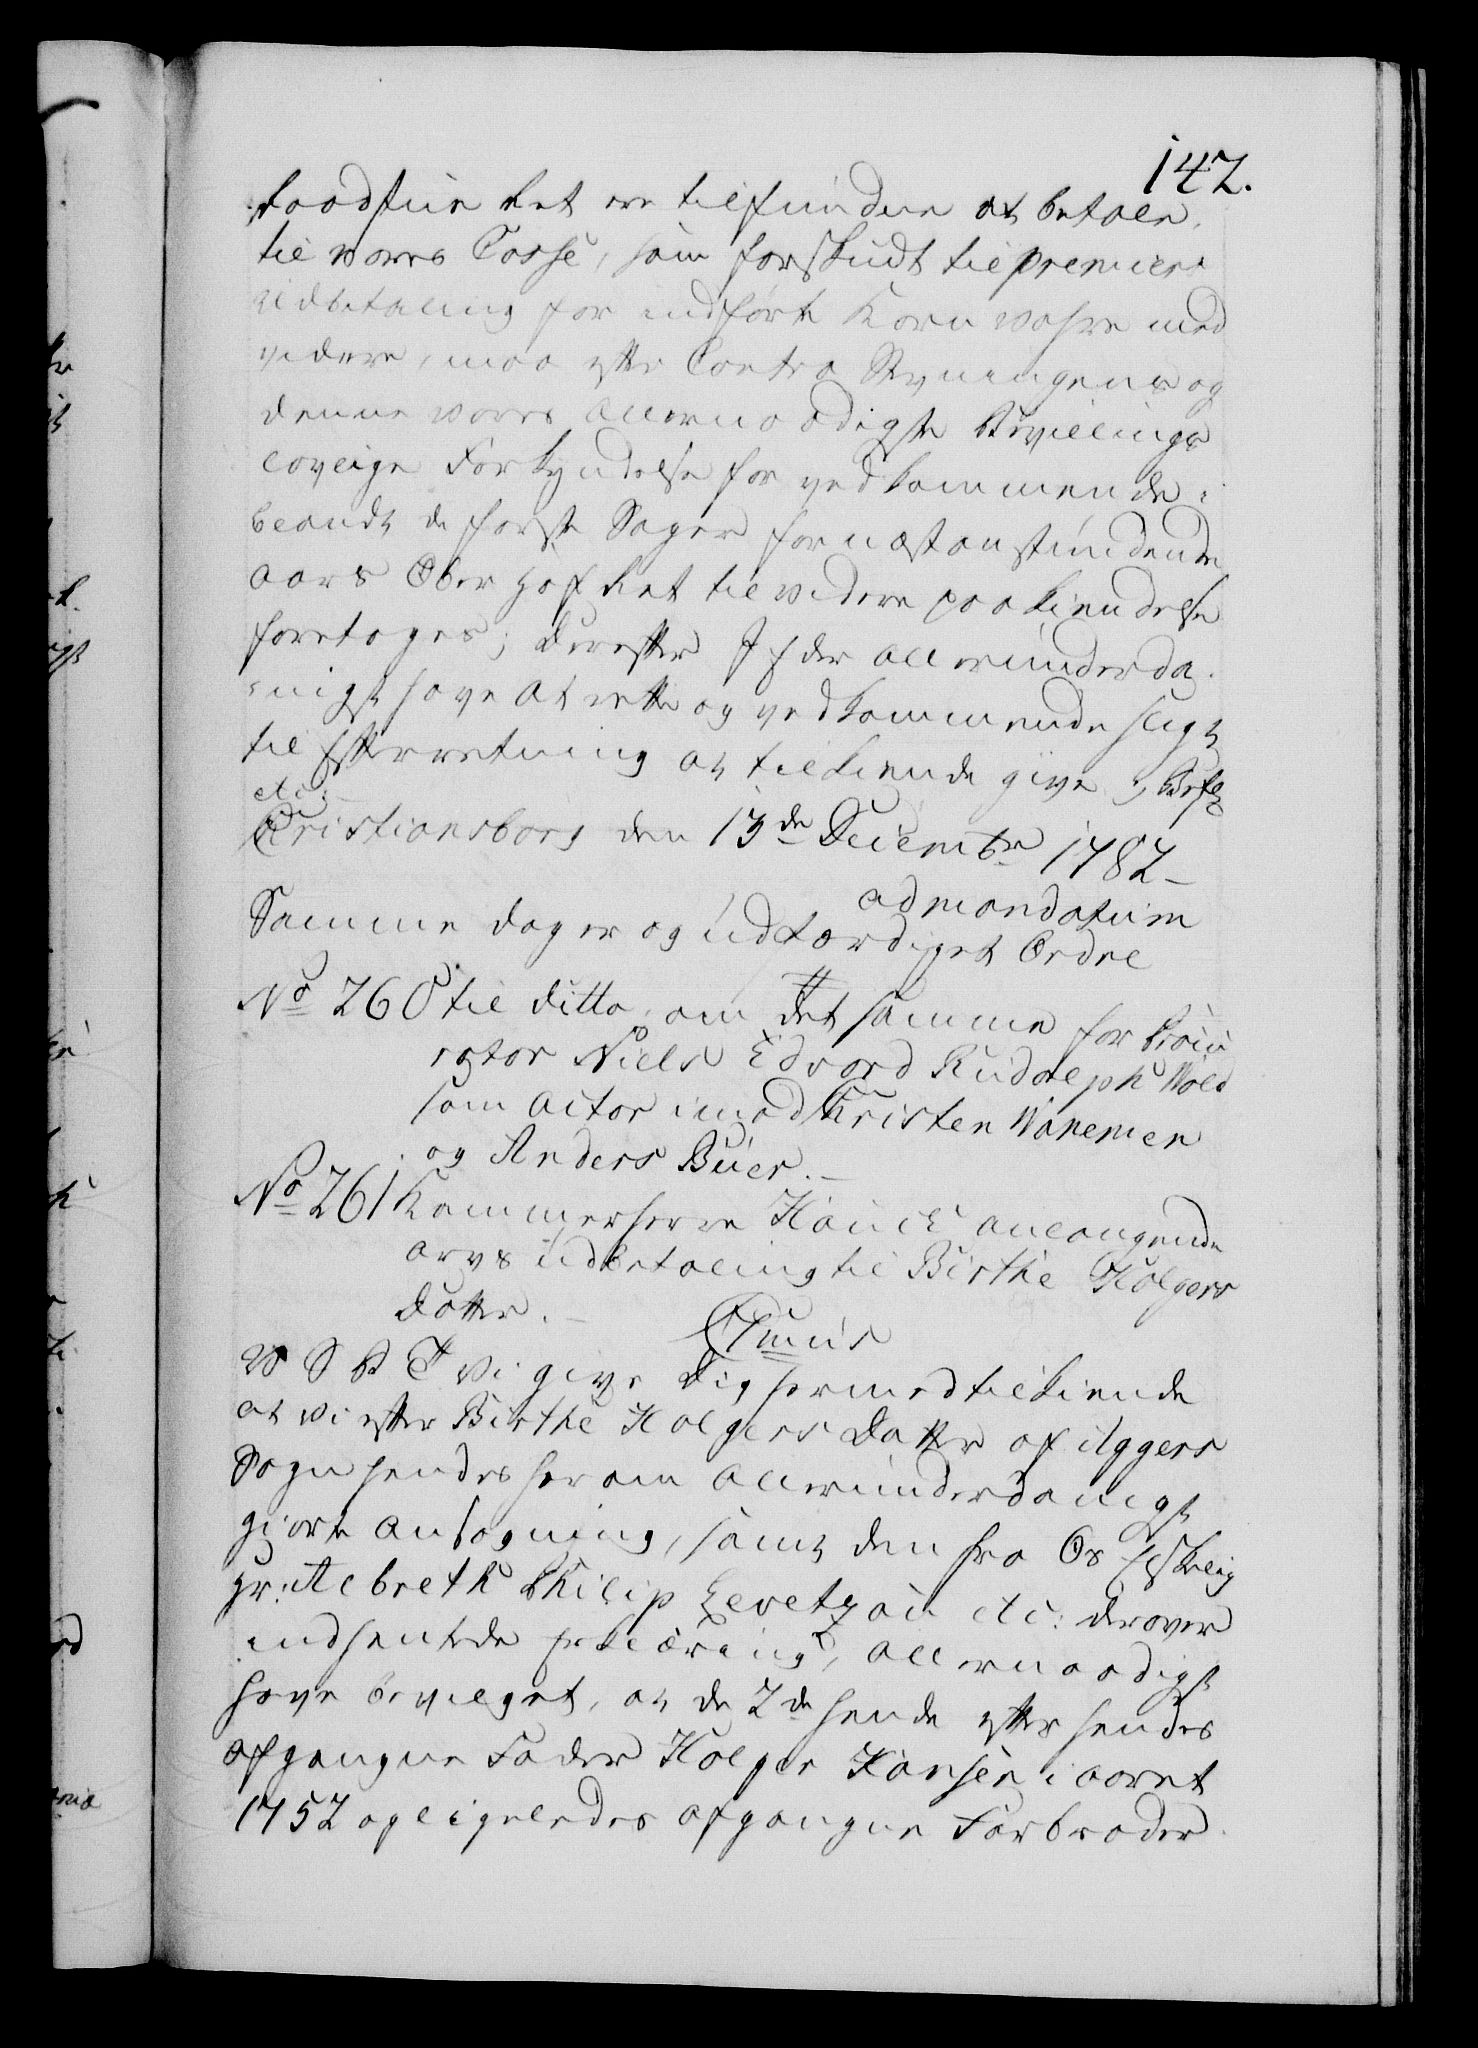 142.
Raadstue Ret ere tilfunden at betale,
til vores Casse, som forskudt til premiers
udbetaling for indførte Korn vahre med
videre, maa efter Contra Stevningens og
denne vores allernaadigste Bevillings
lovlige Forkyndelse for vedkommende i
blandt de første Sager for næstanstundende
aars Ober Hof Ret til videre paakiendelse
foretages; derefter I eder allerunderda-
nigst have at rette og vedkommende sligt
til Efterretning at tilkiende give; Befl
etc:
Cristiansborg den 13de Decembr 1782 –
ad mandatum
Samme dag er og udfærdiget Ordre
No 260 til ditto, om det samme for Procu
rator Niels Edvard Rudolph Vold
som actor imod Kristen Wanemen
og Anders Buer. –
No 261 Kammerherre Hauch anlangende
arvs udbetaling til Birthe Holgers
datter. –
C 7mus
V S G T Vi give dig hermed tilkiende
at vi efter Birthe Holgers datter af Aggers
Sogn hendes herom allerunderdanigst
giorte ansøgning, samt den fra Os Elskelig
Hr: Albreth Philip Levetzau etc: derover
indhentede Erklæring, allernaadigst
have bevilget, at de 2de hende efter hendes
afgangne Fader Holger Hansen i aaret
1752 og ligeledes afgangne Farbroder